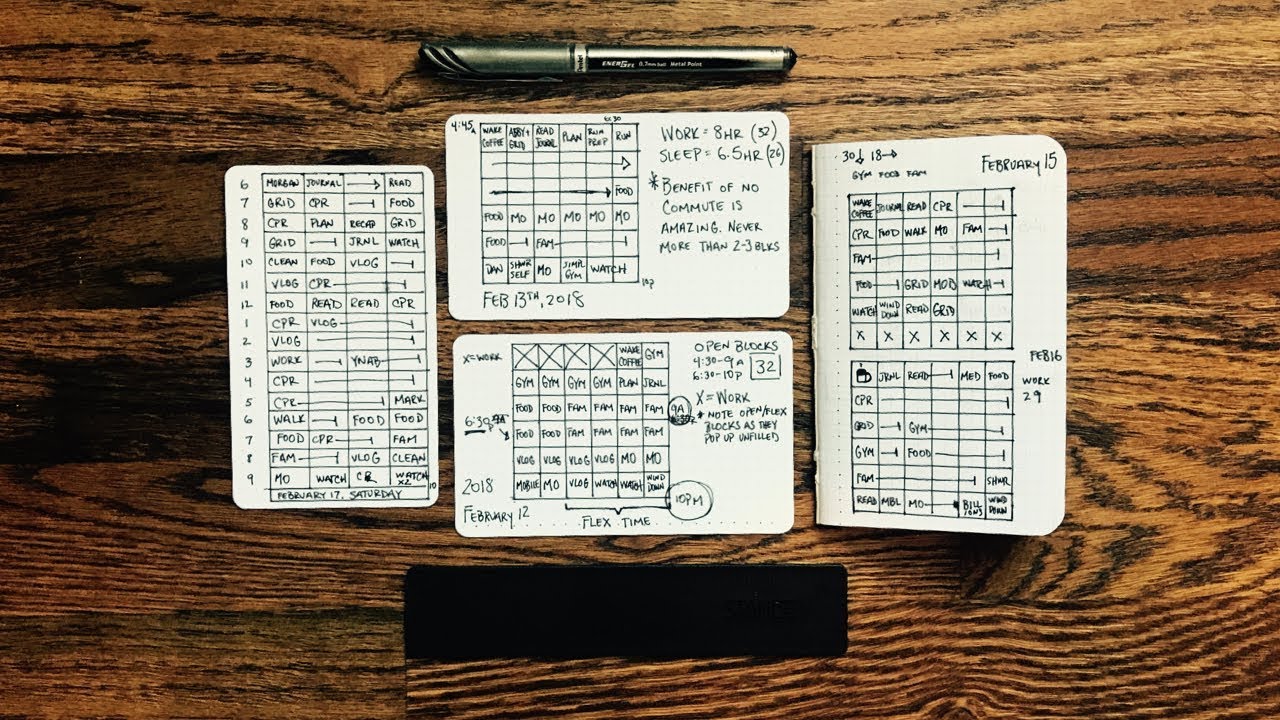 Pentel ENERGEL 0.7mm ball Metal Point
6 MORGAN JOURNAL READ
7 GRID CPR FOOD
8 CPR PLAN RECAP GRID
9 GRID JRNL WATCH
10 CLEAN FOOD VLOG
11 VLOG CPR
12 FOOD READ READ CPR
1 CPR VLOG
2 VLOG
3 WORK YNAB
4 CPR
5 CPR MARK
6 WALK FOOD FOOD
7 FOOD CPR FAM
8 FAM VLOG CLEAN
9 MO WATCH WATCH X2 10
FEBRUARY 17, SATURDAY
6:30
4:45A WAKE COFFEE ABBY+ GRID READ JOURNAL PLAN RUN PREP RUN
FOOD
FOOD MO MO MO MO MO
FOOD FAM
DAN SHWR SELF MO SIMPL GYM WATCH
10P
FEB 13TH, 2018
WORK = 8HR (32)
SLEEP = 6.5HR (26)
* BENEFIT OF NO
COMMUTE IS
AMAZING. NEVER
MORE THAN 2-3 BLKS
X=WORK WAKE COFFEE GYM
GYM GYM GYM GYM PLAN JRNL
FOOD FOOD FAM FAM FAM FAM 9A
6:30
FOOD FOOD FAM FAM FAM FAM
VLOG VLOG VLOG VLOG MO MO
MOBILE MO VLOG WATCH WATCH WIND DOWN
2018
FEBRUARY 12
FLEX TIME
10PM
OPEN BLOCKS
4:30-9A
6:30-10P 32
X=WORK
* NOTE OPEN/FLEX
BLOCKS AS THEY
POP UP UNFILLED
30 18
GYM FOOD FAM
FEBRUARY 15
WAKE COFFEE JOURNAL READ CPR
CPR FOOD WALK MO FAM
FAM
FOOD GRID MOD WATCH
WATCH WIND DOWN READ GRID
X X X X X X
FEB 16
WORK
29
JRNL READ MED FOOD
CPR
GRID GYM
GYM FOOD
FAM SHWR
READ MBL MO BILLIONS WIND DOWN